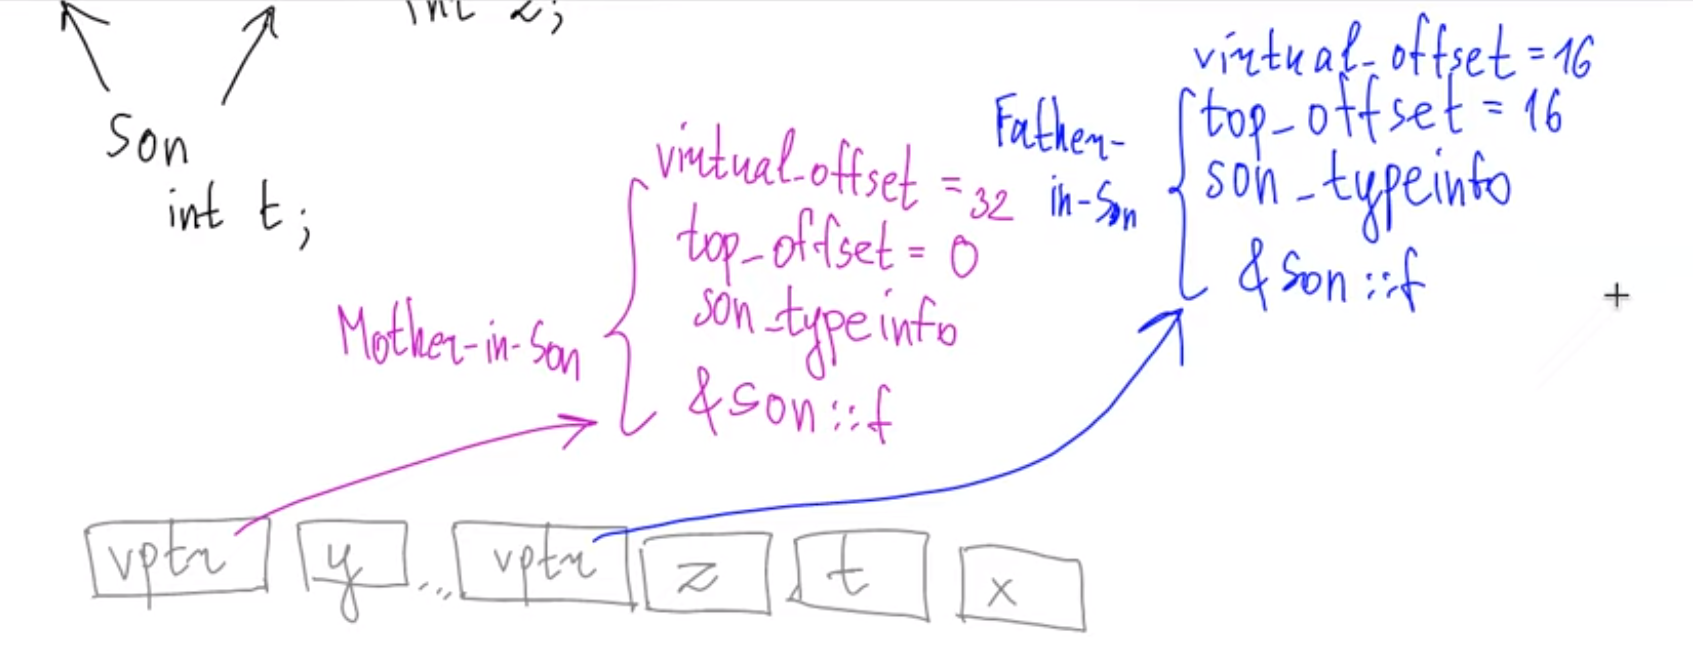 int z;
Son
int t;
Mother-in-Son
virtual_offset = 32
top_offset = 0
son_typeinfo
&Son::f
Father-
in-Son
virtual_offset = 16
top_offset = 16
son_typeinfo
&Son::f
vptr y ... vptr z t x